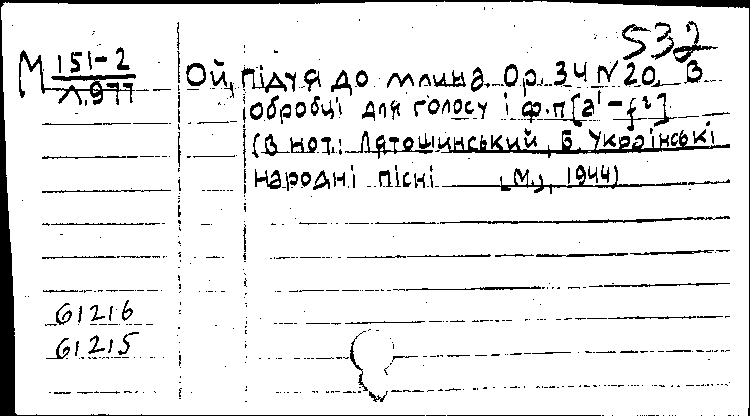 532
М 151-2
Л.977
Ой, піду я до млина. Ор. 34 N 20. В
обробці для голосу і ф.п [a¹-f²]
(В нот.: Лятошинський, Б. Українські
народні пісні [М.], 1944)
61216
61215